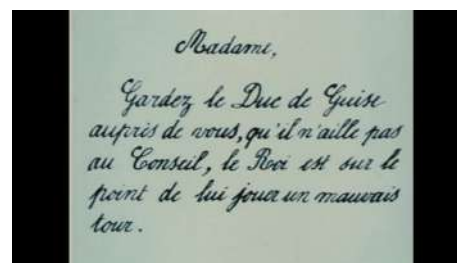 Madame,
Gardez le Duc de Guise
auprès de vous, qu'il n'aille pas
au Conseil, le Roi est sur le
point de lui jouer un mauvais
tour.